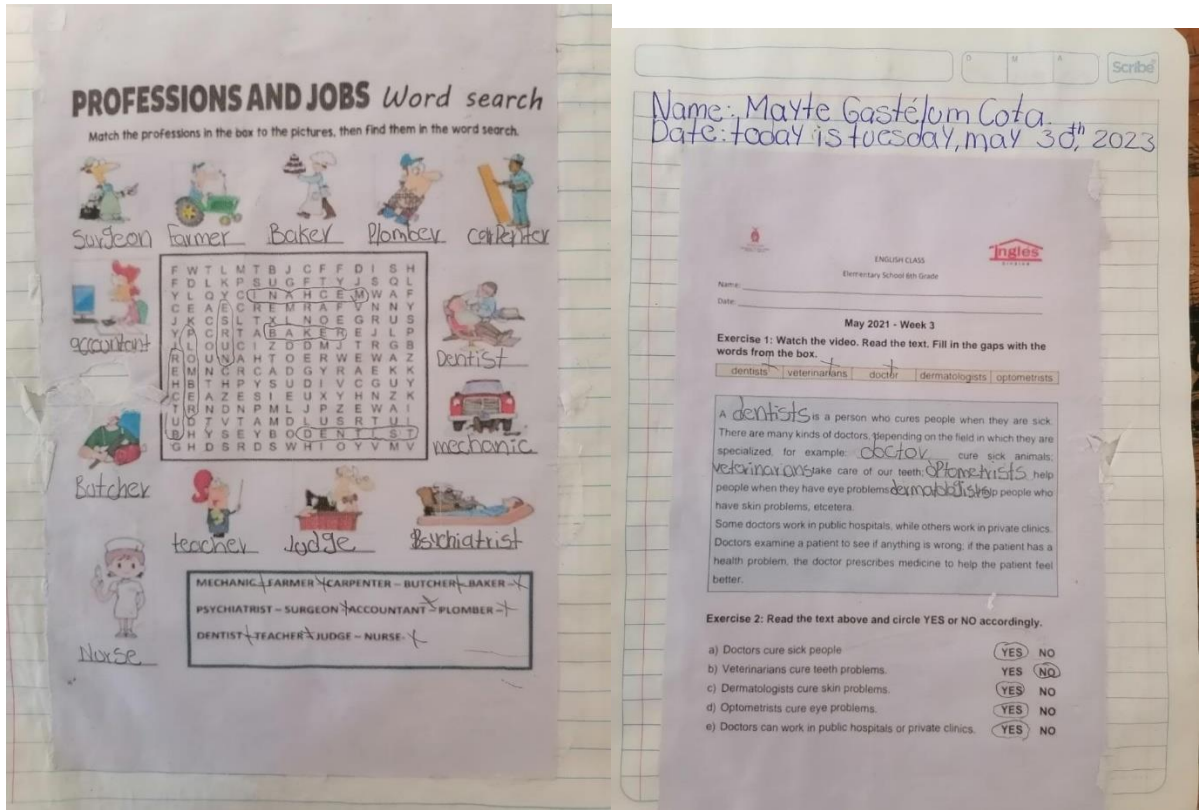 PROFESSIONS AND JOBS Word search
Match the professions in the box to the pictures, then find them in the word search.
Surgeon Farmer Baker Plomber carpenter
accountant
Dentist
mechanic
Butcher
teacher Judge Psychiatrist
Nurse
F W T L M T B J C F F D I S H
F D L K P S U G F T Y J S Q L
Y L Q Y C I N A H C E M W A F
C E A E C R E M R A F V N N Y
J K C S L T X L N O E G R U S
Y P C R T A B A K E R E J L P
J L O U C I Z D D M J T R G B
R O U N A H T O E R W E W A Z
E M N C R C A D G Y R A E K K
H B T H P Y S U D I V C G U Y
C E A Z E S I E U X Y H N Z K
T R N D N P M L J P Z E W A I
U D T V T A M D L U S R T U I
B H Y S E Y B O D E N T I S T
G H D S R D S W H I O Y V M V
MECHANIC-FARMER-CARPENTER – BUTCHER-BAKER –
PSYCHIATRIST – SURGEON-ACCOUNTANT – PLOMBER –
DENTIST-TEACHER-JUDGE – NURSE-
Scribe
D M A
Name: Mayte Gastélum Cota.
Date: today is tuesday, may 30th, 2023
Inglés
ENGLISH CLASS
Elementary School 6th Grade
Name:
Date:
May 2021 - Week 3
Exercise 1: Watch the video. Read the text. Fill in the gaps with the
words from the box.
dentists veterinarians doctor dermatologists optometrists
A dentists is a person who cures people when they are sick.
There are many kinds of doctors, depending on the field in which they are
specialized, for example: doctor cure sick animals;
veterinarians take care of our teeth; optometrists help
people when they have eye problems dermatologists help people who
have skin problems, etcetera.
Some doctors work in public hospitals, while others work in private clinics.
Doctors examine a patient to see if anything is wrong; if the patient has a
health problem, the doctor prescribes medicine to help the patient feel
better.
Exercise 2: Read the text above and circle YES or NO accordingly.
a) Doctors cure sick people YES NO
b) Veterinarians cure teeth problems. YES NO
c) Dermatologists cure skin problems. YES NO
d) Optometrists cure eye problems. YES NO
e) Doctors can work in public hospitals or private clinics. YES NO